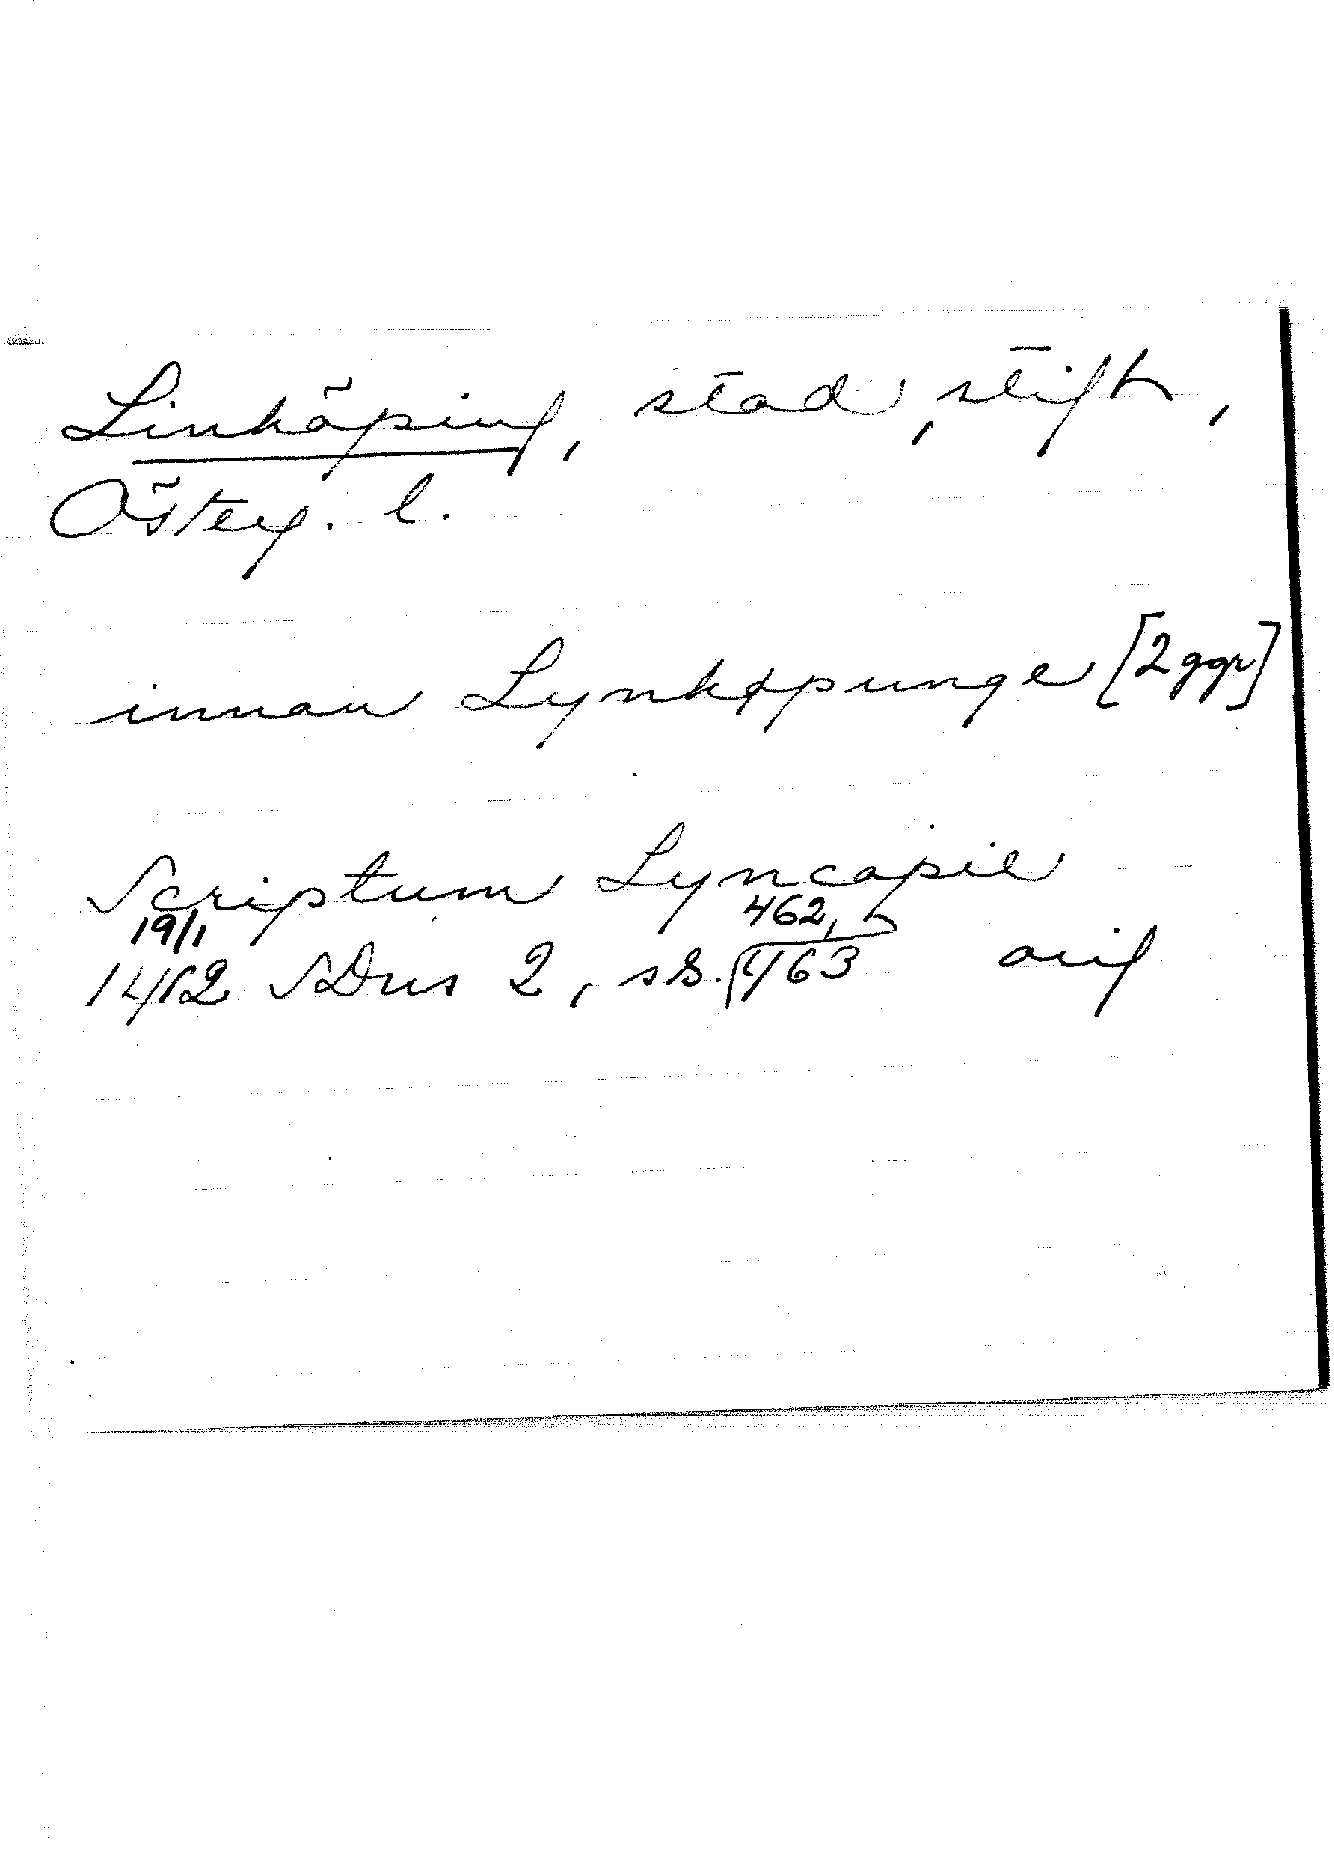 Linköping, stad, stift,
Österg. l.
innan Lynkøpunge [2 ggr]
Scriptum Lyncopie
19/1 462,
1412 SDns 2, ss. 463 orig